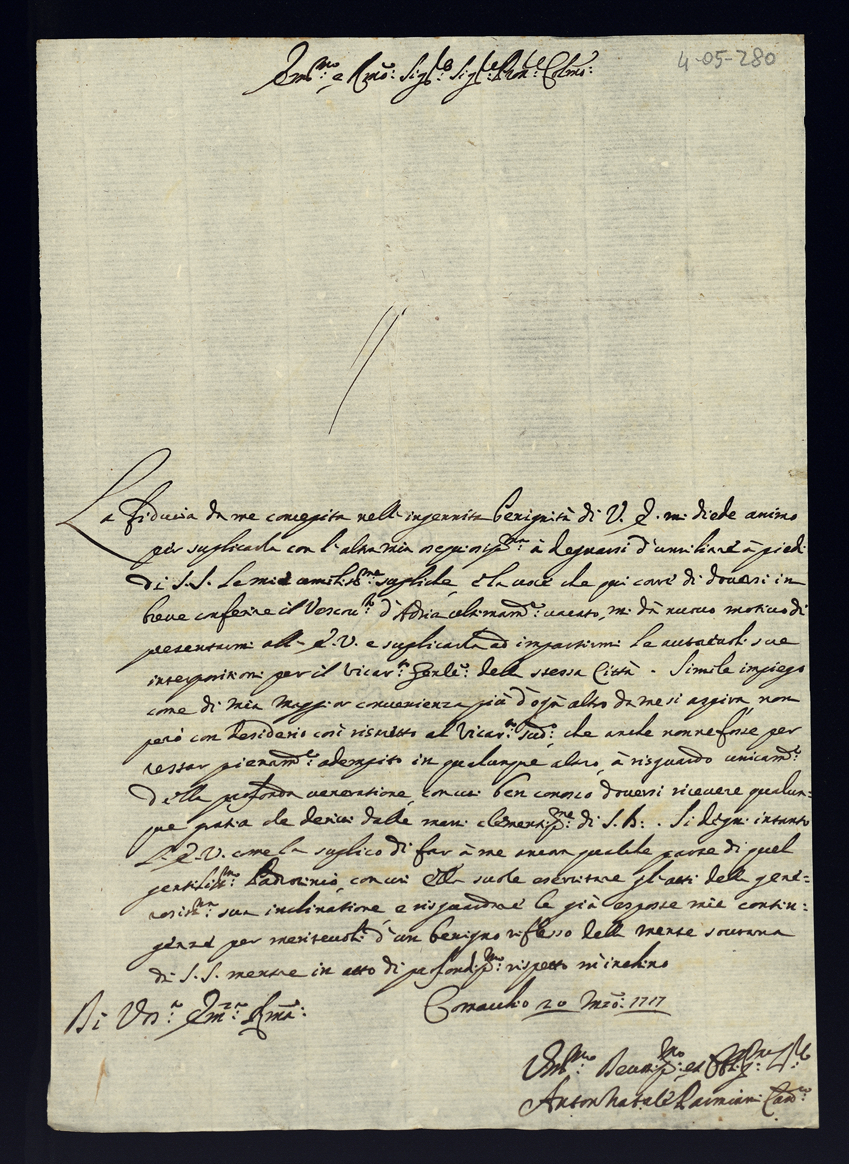 4-05-280
Em:mo e Rmo: Sig:r Sig:r e Pron: Colmo:
La fiducia da me concepita nell' ingennita benignità di V. E. mi diede animo
per suplicarla con l'altra mia ossequiosiss:ma à degnarsi d'umiliare à piedi
di S. S. le mie umiliss:me supliche, e la voce che qui corre di doversi in
breve conferire il Vescov:to d'Adria ultimam:te vacato, mi dà nuovo motivo di
presentarmi all' E. V. e suplicarla ad impartirmi le autorevoli sue
interpositioni per il Vicar:to Gen:le della stessa Città. Simile impiego
come di mia maggior convenienza più d'ogn' altro da me si aspira, non
però con desiderio così ristretto al Vicar:to sud:o che anche non ne fosse per
restar pienam:te adempito in qualunque altro, à risguardo unicam:te
della profonda veneratione, con cui ben conosco doversi ricevere qualun=
que gratia che derivi dalle mani clementiss:me di S. B. Si degni intanto
L'E. V. come la suplico di far à me ancora qualche parte di quel
gentiliss:mo Padrocinio, con cui ella suole esercitare gl'atti della gene=
rosiss:ma sua inclinatione e risguardare le già esposte mie contin=
genze per meritevoli d'un benigno riflesso della mente sovrana
di S. S. mentre in atto di profondiss:mo rispetto m'inchino
Di V:ra Em:za Rma:
Comachio 20 Mzo: 1717
Um:mo Devotiss:mo et Obblig:mo
Anton Natale